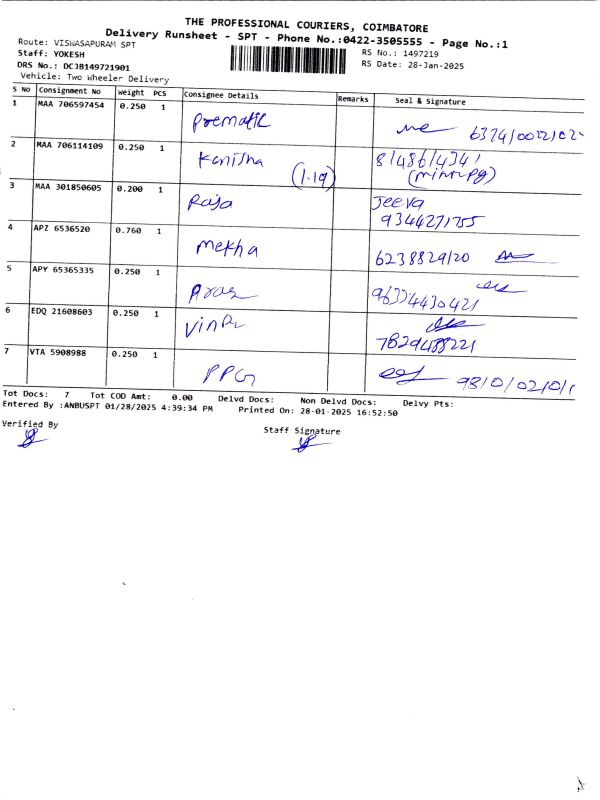 THE PROFESSIONAL COURIERS, COIMBATORE
Delivery Runsheet - SPT - Phone No.:0422-3505555 - Page No.:1
Route: VISWASAPURAM SPT
Staff: YOKESH
RS No.: 1497219
DRS No.: DCJB149721901
RS Date: 28-Jan-2025
Vehicle: Two Wheeler Delivery
S No Consignment No Weight PCS Consignee Details Remarks Seal & Signature
1 MAA 706597454 0.250 1
2 MAA 706114109 0.250 1 Kanisha
(1.19)
3 MAA 301850605 0.200 1 Raja Jeeva
9344271755
4 APZ 6536520 0.760 1 Mekha
6238829120
5 APY 65365335 0.250 1
6 EDQ 21608603 0.250 1
7829488221
7 VTA 5908988 0.250 1 PPG
Tot Docs: 7 Tot COD Amt: 0.00 Delvd Docs: Non Delvd Docs: Delvy Pts:
Entered By :ANBUSPT 01/28/2025 4:39:34 PM Printed On: 28-01-2025 16:52:50
Verified By
Staff Signature